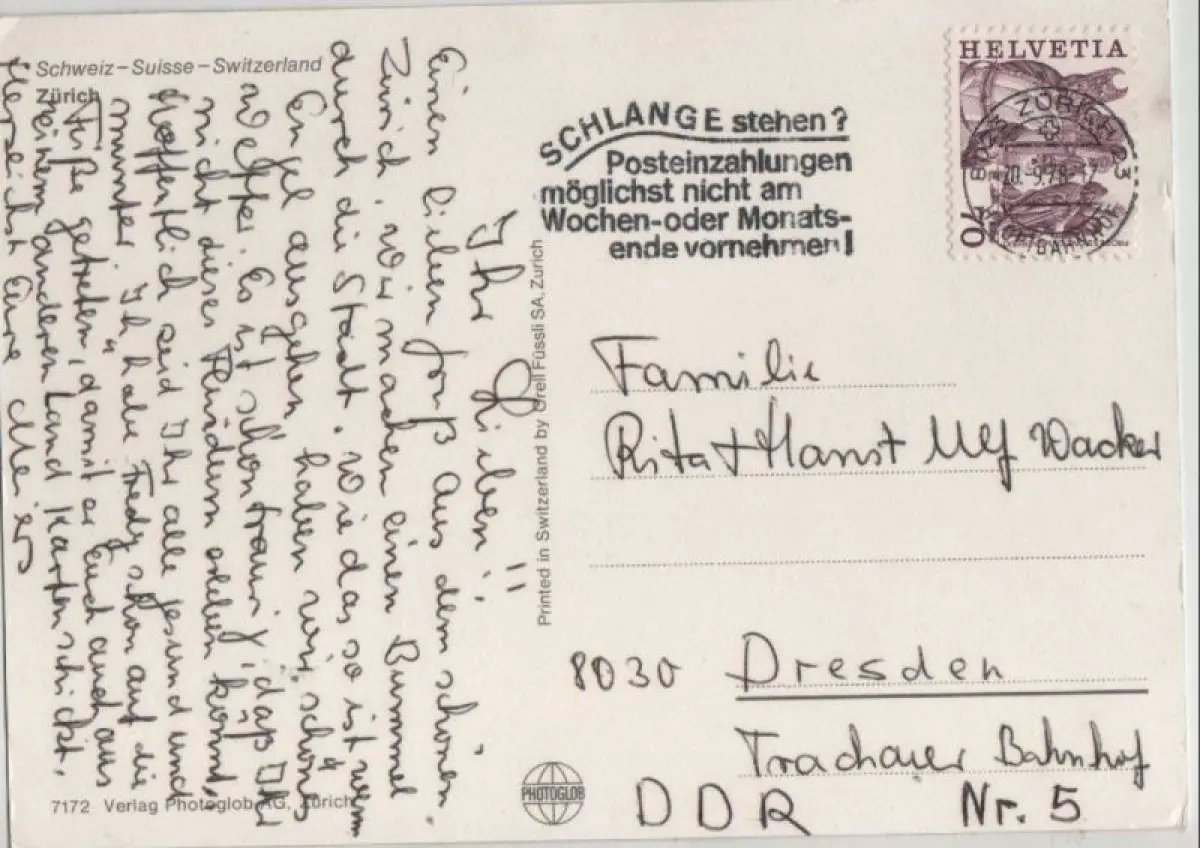 Schweiz – Suisse – Switzerland
Zürich
Ihr Lieben!!
Einen lieben Gruß aus dem schönen
Zürich. Wir machen einen Bummel
durch die Stadt. Wie das so ist wenn
Engel ausgehen haben wir schönes
Wetter. Es ist schon traurig, daß Ihr
nicht dieses erleben könnt.
Hoffentlich seid Ihr alle gesund und
munter. Ich habe Fredy schon auf die
Füße getreten, damit er Euch auch aus
einem anderen Land Karten schickt.
Herzlichst Eure
7172 Verlag Photoglob AG, Zürich
Printed in Switzerland by Orell Füssli SA, Zürich
PHOTOGLOB
SCHLANGE stehen?
Posteinzahlungen
möglichst nicht am
Wochen-oder Monats-
ende vornehmen!
HELVETIA
70
ZÜRICH 23
20.-9.78-17
Familie
Rita + Hanst Ulf Wacker
8030 Dresden
Trachauer Bahnhof
DDR Nr. 5